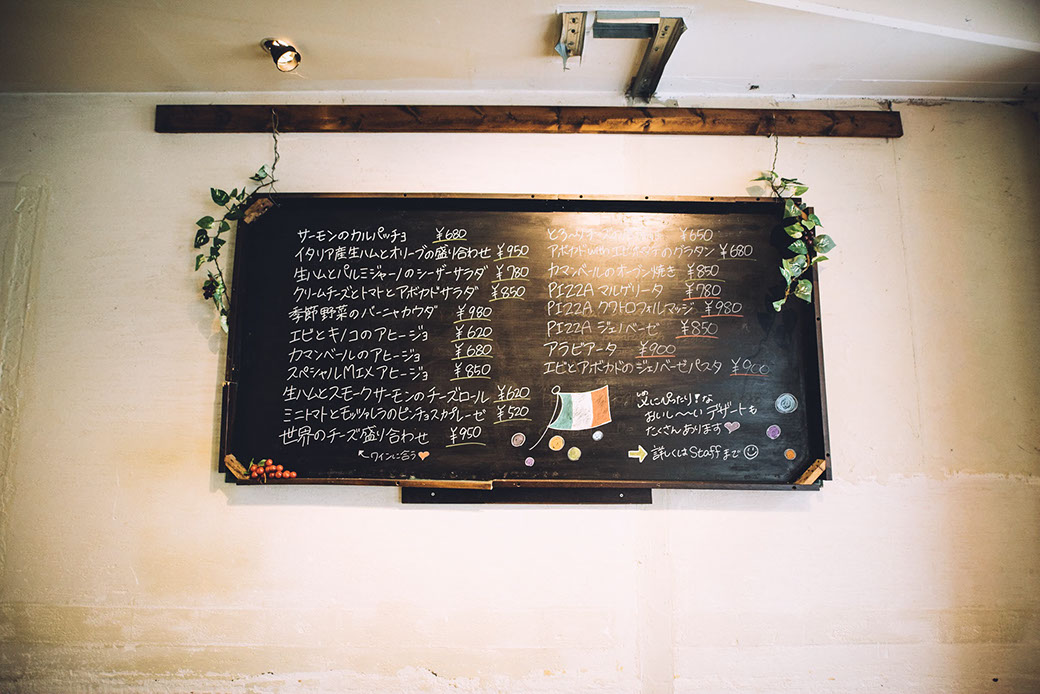 サーモンのカルパッチョ ¥680
イタリア産生ハムとオリーブの盛り合わせ ¥950
生ハムとパルミジャーノのシーザーサラダ ¥780
クリームチーズとトマトとアボカドサラダ ¥850
季節野菜のバーニャカウダ ¥980
エビとキノコのアヒージョ ¥620
カマンベールのアヒージョ ¥680
スペシャルMIXアヒージョ ¥850
生ハムとスモークサーモンのチーズロール ¥620
ミニトマトとモッツァレラのピンチョスカプレーゼ ¥520
世界のチーズ盛り合わせ ¥950
←ワインに合う
とろ〜り ¥650
アボカド のグラタン ¥680
カマンベールのオーブン焼き ¥850
PIZZA マルゲリータ ¥780
PIZZA クワトロフォルマッジ ¥980
PIZZA ジェノベーゼ ¥850
アラビアータ ¥900
エビとアボカドのジェノベーゼパスタ ¥900
にぴったり!な
おいし〜い デザートも
たくさんあります
→ 詳しくはStaffまで